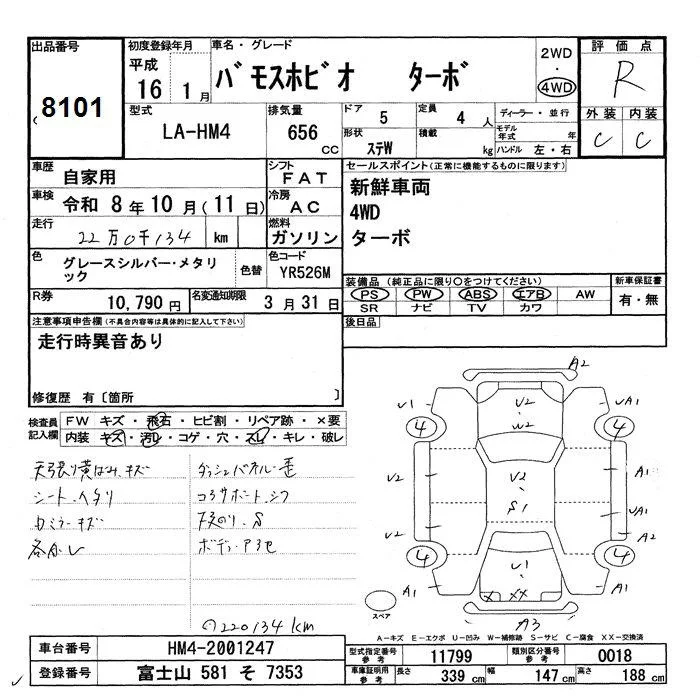 出品番号
8101
初度登録年月
平成
16 1月
車名・グレード
バモスホビオ ターボ
2WD
・
4WD
評価点
R
外装 内装
C C
型式
LA-HM4
排気量
656
cc
ドア
5
定員
4 人
形状
ステW
積載
kg
ディーラー・並行
モデル年式 年
ハンドル 左・右
車歴
自家用
シフト
FAT
車検
令和 8年 10月(11日)
冷房
AC
走行
22万0千134 km
燃料
ガソリン
色
グレースシルバー・メタリック
色替
色コード
YR526M
R券
10,790円
名変通知期限
3月31日
セールスポイント(正常に機能するものに限ります)
新鮮車両
4WD
ターボ
装備品 (純正品に限り〇をつけてください)
PS PW ABS エアB AW
SR ナビ TV カワ
新車保証書
有・無
後日品
注意事項申告欄(不具合内容等は具体的に記入して下さい)
走行時異音あり
修復歴 有〔箇所 〕
検査員
記入欄
FW キズ・飛石・ヒビ割・リペア跡・×要
内装 キズ・汚レ・コゲ・穴・スレ・キレ・破レ
天張り黄ばみ、キズ
ダッシュパネル・歪
シート、ヘタリ
コラサポート、シフ
カミラーキズ
下廻り、S
ボディ・ア3セ
220134km
A2
V1 V2 UA1
W2
4 4
V2 V2 A1
S1 UA1
V2 A2
4 4
V1
A1 XX A1
A3
スペア
A-キズ E-エクボ U-凹み W-補修跡 S-サビ C-腐食 XX-交換済
車台番号
HM4-2001247
登録番号
富士山 581 そ 7353
型式指定番号
参考
11799
類別区分番号
参考
0018
車庫証明用
参考
長さ 339 cm
幅 147 cm
高さ 188 cm